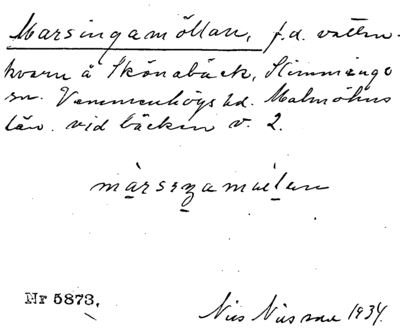 Marsingamöllan, f.d. vatten-
kvarn å Skönabäck, Slimminge
sn. Vemmenhögs hd. Malmöhus
län. vid bäcken v. 2.
Nr 5873.
Nils Nilsson 1934.